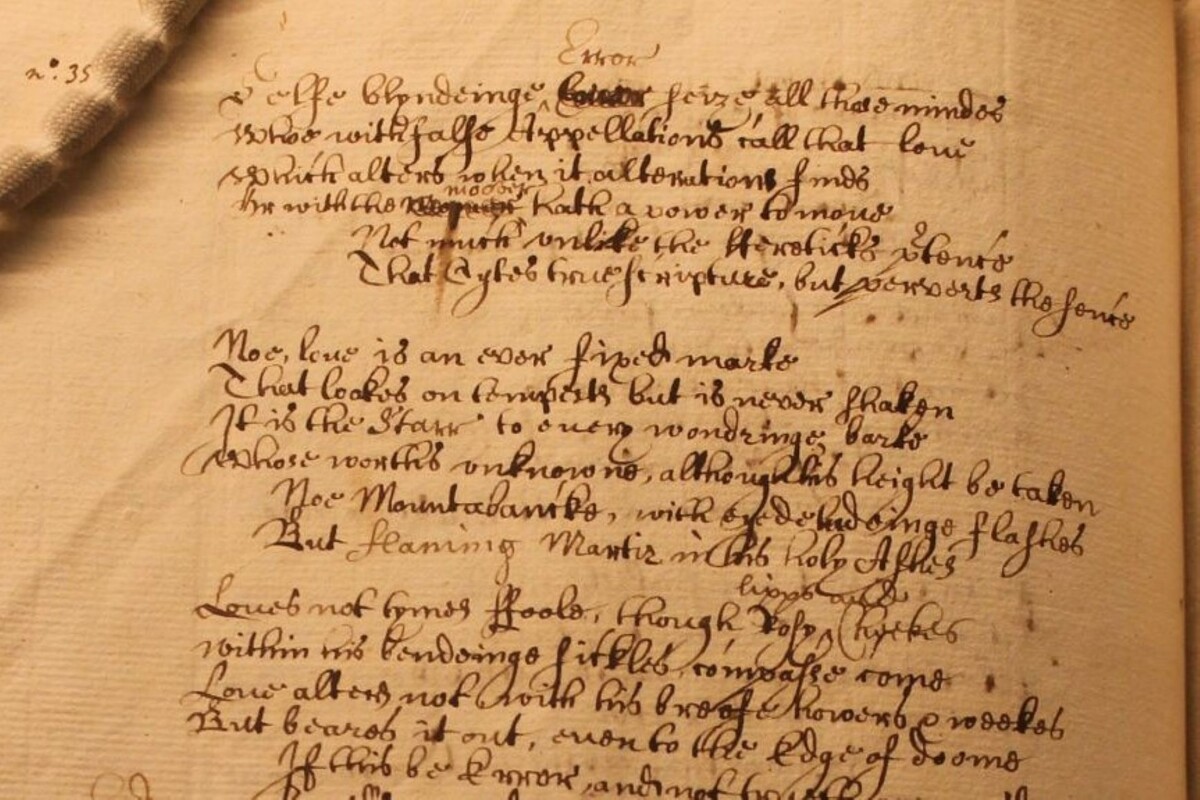 Error
n.º 35
Selfe blyndeinge seize all those mindes
Whoe with false Appellations call that love
Which alters when it alterations finds
mover
Or with the hath a power to move
Not much unlike the Hereticks p̃tence
That Cytes true scripture, but perverts the sence
Noe, love is an ever fixed marke
That lookes on tempests but is never shaken
It is the Starr to every wondringe barke
Whose worths unknowne, although his height be taken
Noe Mountabancke, with eyedeludeinge flashes
But flaming Martir in his holy Ashes
lipps and
Loves not tymes ffoole, though Rosy Cheekes
within his bendeinge sickles compasse come
Love alters not with his breefe howers & weekes
But beares it out, even to the Edge of doome
If this be Error, and not